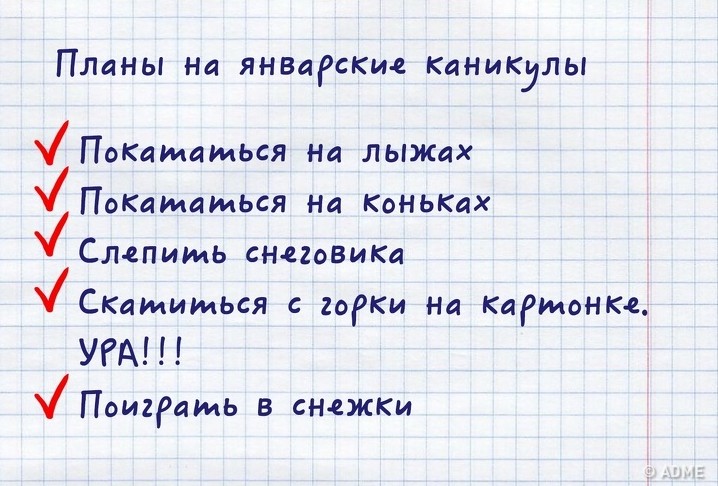 Планы на январские каникулы
Покататься на лыжах
Покататься на коньках
Слепить снеговика
Скатиться с горки на картонке.
УРА!!!
Поиграть в снежки
© ADME